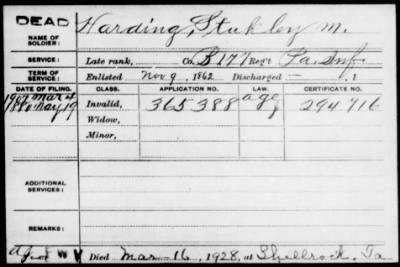 DEAD
NAME OF SOLDIER: Harding, Stukley M.
SERVICE: Late rank, Co. B 177 Reg't Pa. Inf.
TERM OF SERVICE: Enlisted Nov. 9, 1862 Discharged — , 1
DATE OF FILING. CLASS. APPLICATION NO. LAW. CERTIFICATE NO.
Mar
May 19 Invalid, 365388 age 294716
Widow,
Minor,
ADDITIONAL SERVICES:
REMARKS:
W V Died Mar. 16, 1928, at Shellrock, Ia